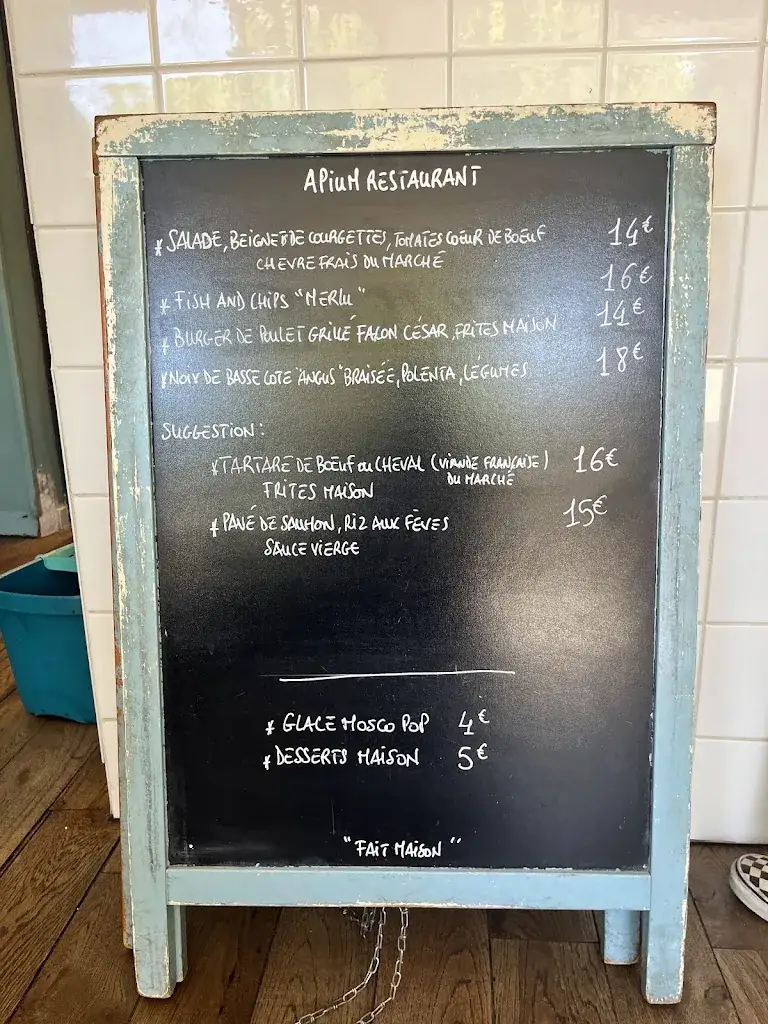 APIUM RESTAURANT
* SALADE, BEIGNET DE COURGETTES, TOMATES COEUR DE BOEUF 14€
CHEVRE FRAIS DU MARCHÉ
* FISH AND CHIPS "MERLU" 16€
* BURGER DE POULET GRILLÉ FAÇON CÉSAR, FRITES MAISON 14€
* NOIX DE BASSE COTE "ANGUS" BRAISÉE, POLENTA, LÉGUMES 18€
SUGGESTION :
* TARTARE DE BOEUF OU CHEVAL (VIANDE FRANÇAISE) 16€
DU MARCHÉ
FRITES MAISON
* PAVÉ DE SAUMON, RIZ AUX FÈVES 15€
SAUCE VIERGE
* GLACE MOSCO POP 4€
* DESSERTS MAISON 5€
"FAIT MAISON"